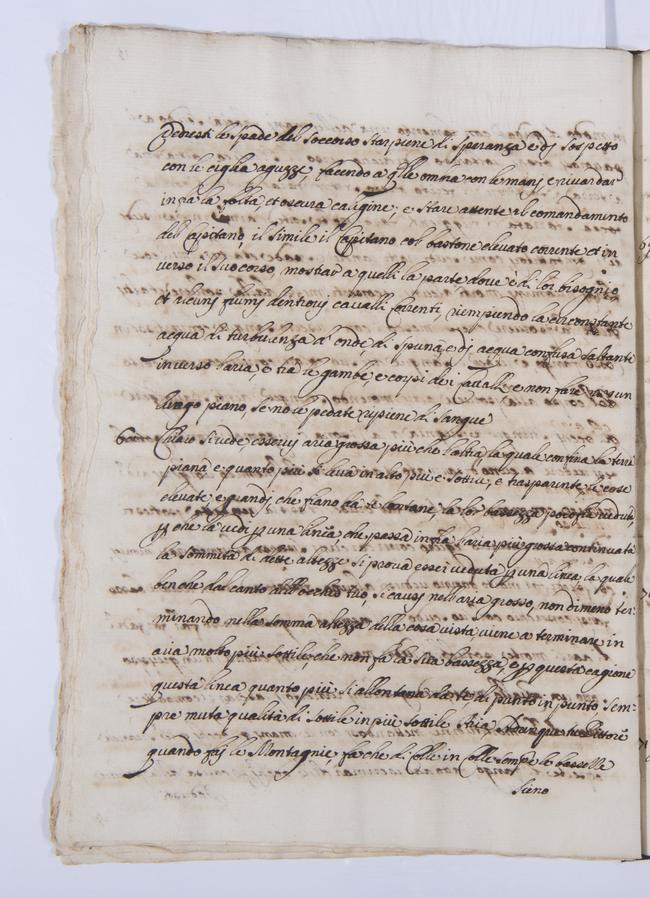 Vedresti le spade del soccorso star piene di speranza e di sospetto
con le ciglia aguzze, facendo a q.lle ombra con le mani e riguardar
infra la folta et oscura caligine; e stare attente al comandamento
del Capitano, il simile il Capitano col bastone elevato corrente et in
verso il succorso, mostrar a quelli la parte dove è di lor bisogno,
et alcuni fiumi dentrovi cavalli correnti, riempiendo la circonstante
acqua di turbulenza d'onde, di spuma, e di acqua confusa saltante
inverso l'aria, e tra le gambe, e corpi dei cavalli e non fare nessun
luogo piano, se no le pedate ripiene di sangue
60 Chiaro si vede, esservi aria grossa più che l'altra la quale confina la terra
piana e quanto più si leva in alto più è sottile, e trasparente le cose
elevate e grandi che fiano da te lontane, la lor bassezza poco fia veduta,
p che la vedi p una linea, che passa infra l'aria più grossa continuata
la sommità di dette altezze si prova esser veduta p una linea la quale
benche dal canto dell'occhio tuo, si causi nell'aria grossa, non dimeno ter-
minando nella somma altezza della cosa vista viene a terminare in
aria molto più sottile che non fa la sua bassezza, e p questa cagione
questa linea quanto più si allontana da te di punto in punto sem-
pre muta qualità di sottile in più sottile aria Adunque tu Pittore
quando fai le Montagnie, fa che di Colle in Colle sempre le bassezze
sieno